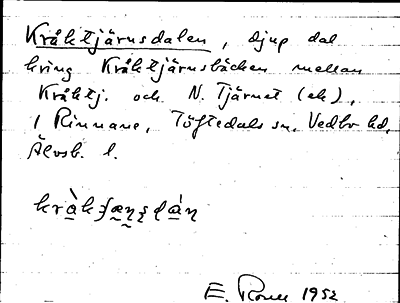 Kråktjärnsdalen, djup dal
kring Kråktjärnsbäcken mellan
Kråktj. och N. Tjärnet (ek),
i Rinnane, Töftedals sn, Vedbo hd,
Älvsb. l.
E. Rosell 1952